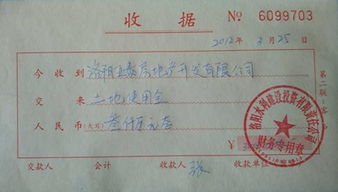 收据 № 6099703
2012年3月25日
今收到 洛阳 房地产开发有限公司
交来 土地使用金
人民币(大写) 叁仟 元
¥
洛阳水利建设投资有限责任公司
财务专用章
交款人 会计 收款人 张 收款单位